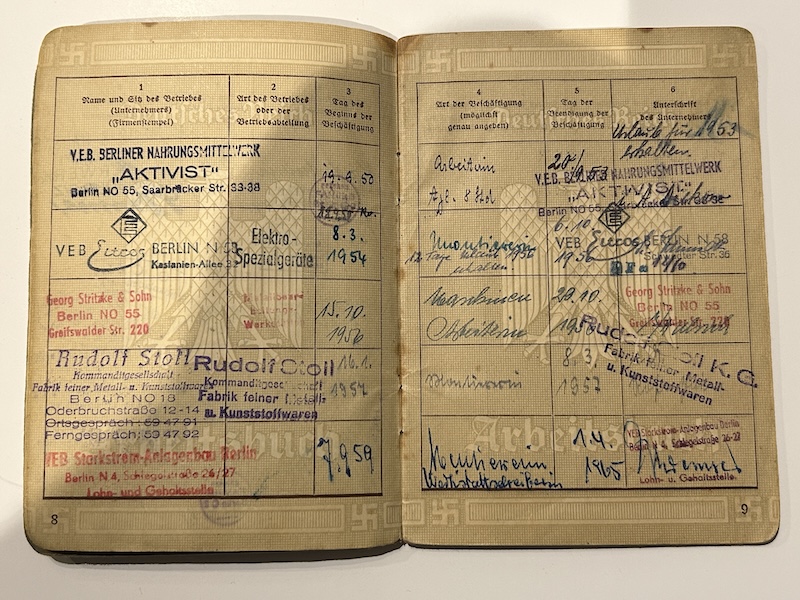 1
Name und Sitz des Betriebes
(Unternehmers)
(Firmenstempel)
2
Art des Betriebes
oder der
Betriebsabteilung
3
Tag des
Beginns der
Beschäftigung
V.E.B. BERLINER NAHRUNGSMITTELWERK
„AKTIVIST“
Berlin NO 55, Saarbrücker Str. 33-38
19.9.50
VEB Eucos BERLIN N 58
Kastanien-Allee
Elektro-
Spezialgeräte
8.3.
1954
Georg Stritzke & Sohn
Berlin NO 55
Greifswalder Str. 220
15.10.
1956
Rudolf Stoll
Kommanditgesellschaft
Fabrik feiner Metall- u. Kunststoffwaren
Berlin NO 18
Oderbruchstraße 12-14
Ortsgespräch: 59 47 91
Ferngespräch: 59 47 92
Rudolf Stoll
Kommanditgesellschaft
Fabrik feiner Metall-
u. Kunststoffwaren
16.1.
1957
VEB Starkstrom-Anlagenbau Berlin
Berlin N 4, Schlegelstraße 26/27
Lohn- und Gehaltsstelle
7.9.59
Arbeitsbuch
8
4
Art der Beschäftigung
(möglichst
genau angeben)
5
Tag der
Beendigung der
Beschäftigung
6
Unterschrift
des Unternehmers
Urlaub für 1953
erhalten.
Arbeiterin
Tgl. 8 Std
20/
53
V.E.B. BERLINER NAHRUNGSMITTELWERK
„AKTIVIST“
Berlin NO 55, Saarbrücker Str. 33-38
Montiererin
12 Tage Urlaub 1956
erhalten
6.10.
1956
VEB Eucos BERLIN N 58
Maschinen
Arbeiterin
23.10.
Georg Stritzke & Sohn
Berlin NO 55
Greifswalder Str. 220
Montiererin
8.3.
1957
Rudolf Stoll K. G.
Fabrik feiner Metall-
u. Kunststoffwaren
Montiererin
Werkstattschreiberin
1.4.
1965
VEB Starkstrom-Anlagenbau Berlin
Berlin N 4, Schlegelstraße 26-27
Lohn- u. Gehaltsstelle.
9